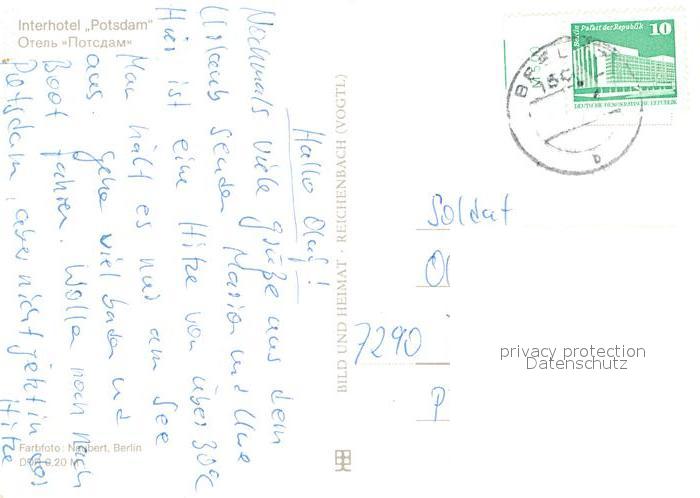 Interhotel „Potsdam"
Отель »Потсдам«
Hallo Olaf!
Nochmals viele Grüße aus dem
Urlaub senden Marion und Uwe
Hier ist eine Hitze von über 30°C
Man hält es nur am See
aus. Gehen viel baden und
Boot fahren. Wollen noch nach
Potsdam, aber nicht jetzt in der
Hitze
Farbfoto: Neubert, Berlin
DDR 0,20 M
BILD UND HEIMAT · REICHENBACH (VOGTL)
Berlin Palast der Republik 10
DEUTSCHE DEMOKRATISCHE REPUBLIK
Soldat
Ol
7290
P
privacy protection
Datenschutz